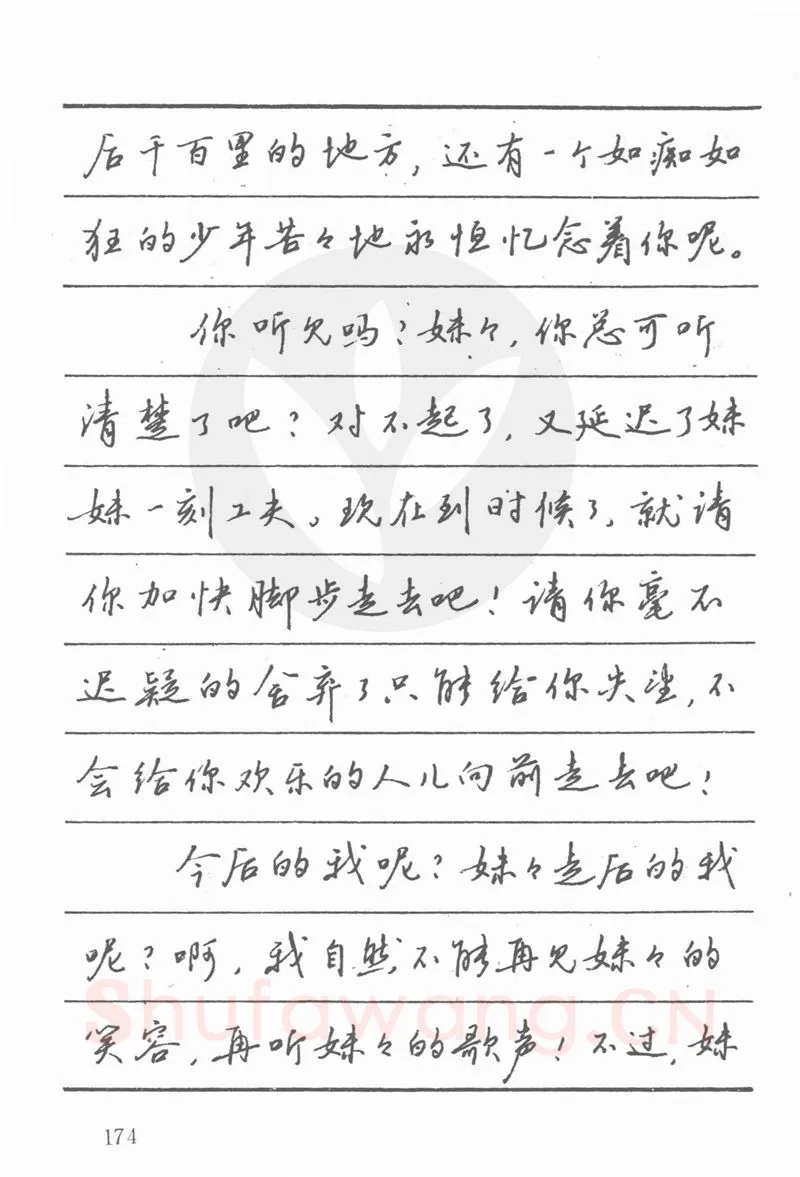 后千百里的地方，还有一个如痴如
狂的少年苦々地永恒忆念着你呢。
你听见吗？妹々，你总可听
清楚了吧？对不起了，又延迟了妹
妹一刻工夫。现在到时候了，就请
你加快脚步走去吧！请你毫不
迟疑的舍弃了只能给你失望，不
会给你欢乐的人儿向前走去吧！
今后的我呢？妹々走后的我
呢？啊，我自然不能再见妹々的
笑容，再听妹々的歌声！不过，妹
Shufawang.CN
174